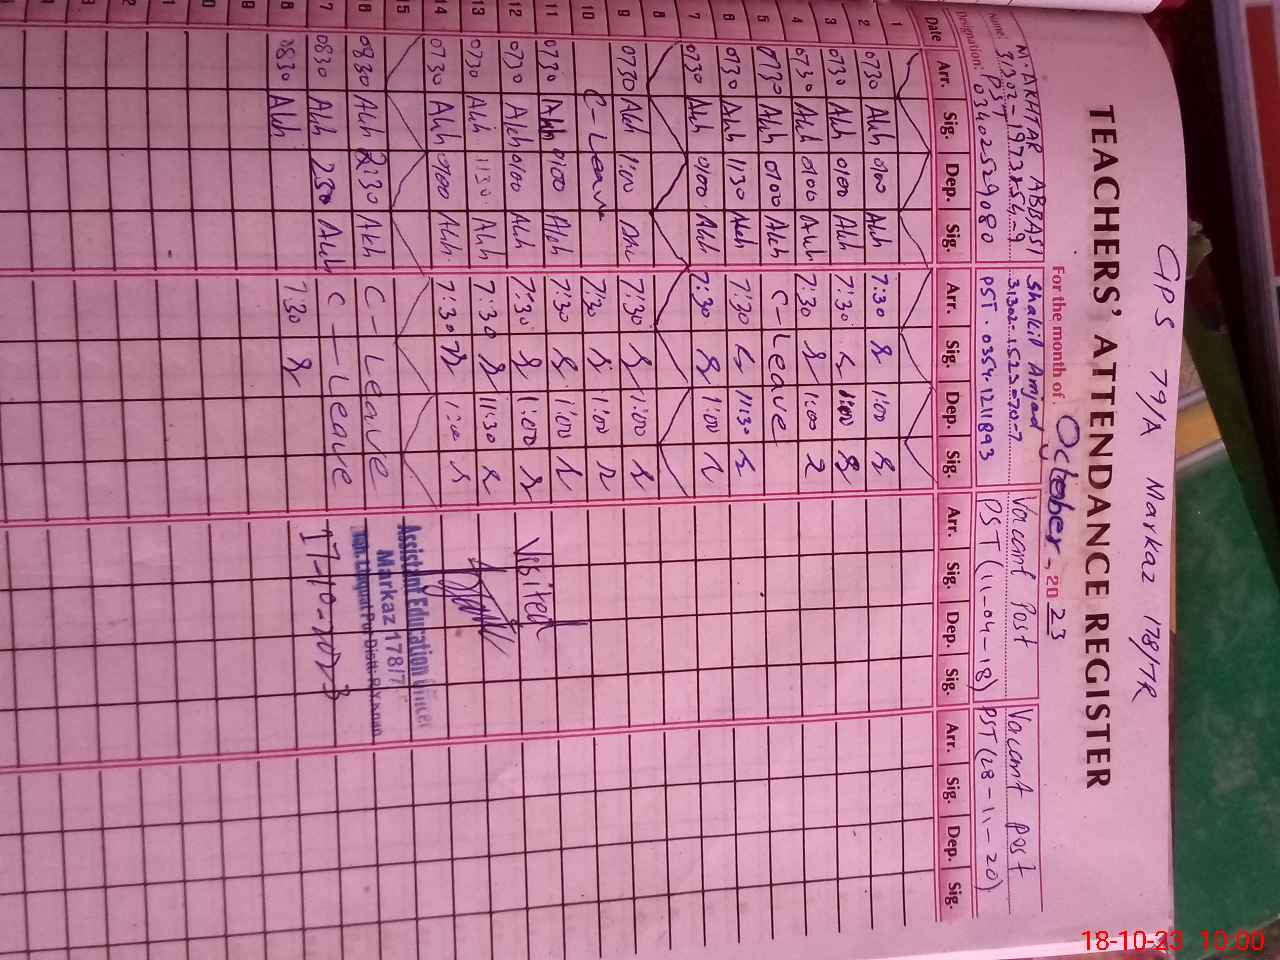 GPS 79/A Markaz 178/7R
TEACHERS' ATTENDANCE REGISTER
For the month of October - 2023
Name: M. AKHTAR ABBASI Shakil Amjad Vacant Post Vacant Post
31302-1973854-9 31302-1523070-7
Designation: PST 03402529080 PST . 03541211893 PST (11-04-18) PST (28-11-20)
Date Arr. Sig. Dep. Sig. Arr. Sig. Dep. Sig. Arr. Sig. Dep. Sig. Arr. Sig. Dep. Sig.
1
2 0730 Akh 0100 Akh 7:30 1:00
3 0730 Akh 0100 Akh 7:30 1:00
4 0730 Akh 0100 Akh 7:30 1:00
5 0730 Akh 0100 Akh C - Leave
6 0730 Akh 1130 Akh 7:30 11:30
7 0730 Akh 0100 Akh 7:30 1:00
8
9 0730 Akh 1:00 7:30 1:00
10 C - Leave 7:30 1:00
11 0730 Akh 0100 Akh 7:30 1:00
12 0730 Akh 0100 Akh 7:30 1:00 Visited
13 0730 Akh 1130 Akh 7:30 11:30
14 0730 Akh 0100 Akh 7:30 1:00
15 Assistant Education Officer
16 0830 Akh 2:30 Akh C - Leave Markaz 178/7
17 0830 Akh 230 Akh C - Leave
18 0830 Akh 7:30 17-10-2023
18-10-23 10:00